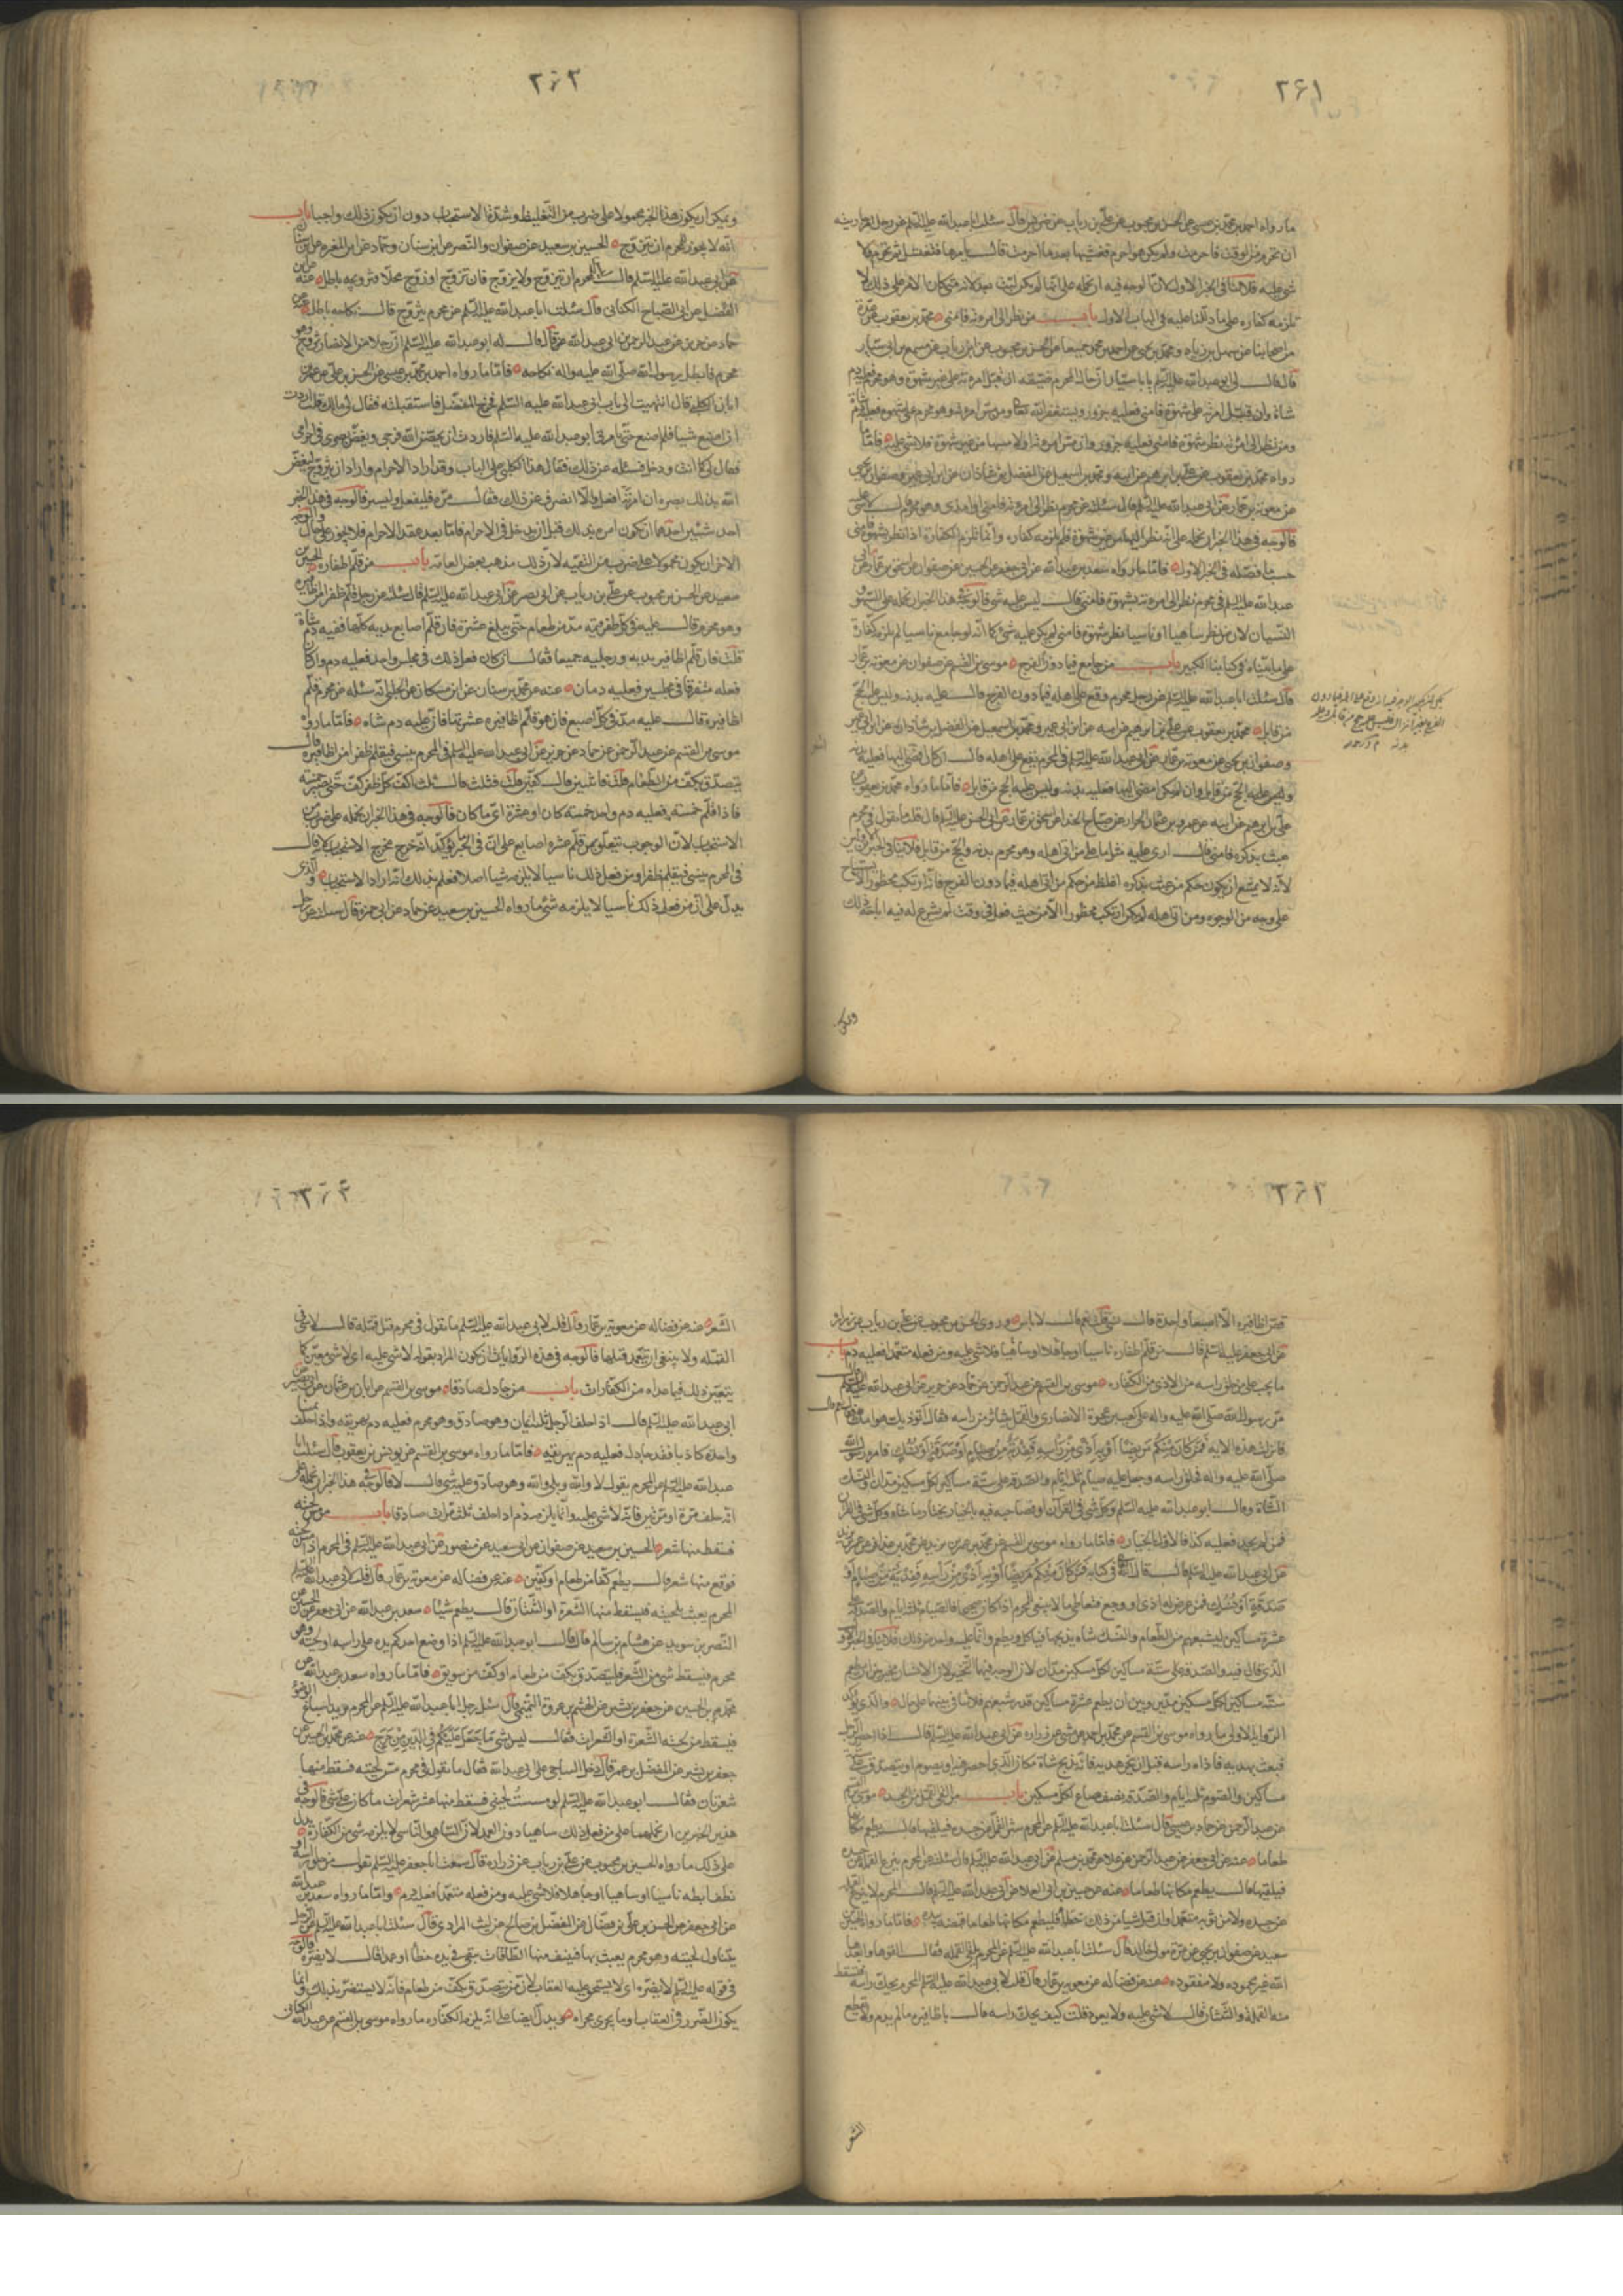 ٢٤١
ما رواه احمد بن محمد بن عيسى عن الحسن بن محبوب عن علي بن رياب عن ضريس قال سئلت ابا عبد الله عليه السلم عن رجل امر جاريته
ان تحرم من الوقت فاحرمت ولم يكن هو احرم فغشيها بعد ما احرمت قال يامرها فتغتسل ثم تحرم ولا
شي عليه فلا ينافي الخبر الاول لان الوجه فيه ان نحمله على انها لم تكن لبت بعد لانه متى كان الامر على ذلك لا
تلزمه كفارة على ما دللنا عليه في الباب الاول باب من نظر الى امرءته فامنى محمد بن يعقوب عن عدة
من اصحابنا عن سهل بن زياد ومحمد بن يحيى عن احمد بن محمد جميعا عن الحسن بن محبوب عن ابن رياب عن مسمع بن ابي سيار
قال قال لي ابو عبد الله عليه السلم يا با سيار ان حال المحرم ضيقه ان قبل امرءته على غير شهوة وهو محرم فعليه دم
شاة وان قبل امرءته على شهوة فامنى فعليه جزور ويستغفر الله ومن مس امرءته وهو محرم على شهوة فعليه دم شاة
ومن نظر الى امرءته نظر شهوة فامنى فعليه جزور وان مس امرءته او لازمها من غير شهوة فلا شي عليه فاما ما
رواه محمد بن يعقوب عن علي بن ابرهيم عن ابيه ومحمد بن اسمعيل عن الفضل بن شاذان عن ابن ابي عمير وصفوان بن يحيى
عن معوية بن عمار عن ابي عبد الله عليه السلم قال سئلته عن محرم نظر الى امرءته فامنى او امذى وهو محرم قال لا شي عليه
فالوجه في هذا الخبر ان نحمله على انه نظر اليها من غير شهوة فلم يلزمه كفاره وانما تلزم الكفارة اذا نظر بشهوة فامنى
حسب ما فصله في الخبر الاول فاما ما رواه سعد بن عبد الله عن ابي جعفر عن الحسين عن صفوان عن اسحق بن عمار عن ابي
عبد الله عليه السلم في محرم نظر الى امرءته بشهوة فامنى قال ليس عليه شي فالوجه في هذا الخبر ان نحمله على السهو
النسيان لان من نظر ساهيا او ناسيا نظر شهوة فامنى لم يكن عليه شي كما انه لو جامع ناسيا لم تلزمه كفارة
على ما بيناه في كتابنا الكبير باب من جامع فيما دون الفرج موسى بن القسم عن صفوان عن معوية بن عمار
قال سئلت ابا عبد الله عليه السلم عن رجل محرم وقع على اهله فيما دون الفرج قال عليه بدنه وليس عليه الحج
من قابل محمد بن يعقوب عن علي بن ابرهيم عن ابيه عن ابن ابي عمير ومحمد بن اسمعيل عن الفضل بن شاذان عن ابن ابي عمير
وصفوان بن يحيى عن معوية بن عمار عن ابي عبد الله عليه السلم في المحرم يقع على اهله قال ان كان افضى اليها فعليه بدنه
وليس عليه الحج من قابل وان لم يكن افضى اليها فعليه بدنه وليس عليه الحج من قابل فاما ما رواه محمد بن يعقوب عن
علي بن ابرهيم عن ابيه عن عمرو بن عثمان الخزاز عن صباح الحذاء عن اسحق بن عمار عن ابي الحسن عليه السلم قال قلت ما تقول في محرم
عبث بذكره فامنى قال ارى عليه مثل ما على من اتى اهله وهو محرم بدنه والحج من قابل فلا ينافي الخبرين الاولين
لانه لا يمتنع ان يكون حكم من عبث بذكره اغلظ من حكم من اتى اهله فيما دون الفرج فانه ارتكب محظورا لا يستباح
على وجه من الوجوه ومن اتى اهله لم يكن ارتكب محظورا الا من حيث فعل في وقت لم يشرع له فيه اباحة ذلك
ويمكن
٢٤٢
ويمكن ان يكون هذا الخبر محمولا على ضرب من التغليظ وشدة الاستحباب دون ان يكون ذلك واجبا باب
انه لا يجوز للمحرم ان يتزوج الحسين بن سعيد عن صفوان والنضر عن ابن سنان وحماد عن ابن المغيرة عن ابن سنان
عن ابي عبد الله عليه السلم قال ليس للمحرم ان يتزوج ولا يزوج فان تزوج او زوج محلا فتزويجه باطل عنه عن ابن
الفضيل عن ابي الصباح الكناني قال سئلت ابا عبد الله عليه السلم عن محرم يتزوج قال نكاحه باطل عنه عن
حماد عن حريز عن عبد الرحمن بن ابي عبد الله عن قال قال له ابو عبد الله عليه السلم ان رجلا من الانصار تزوج وهو
محرم فابطل رسول الله صلى الله عليه واله نكاحه فاما ما رواه احمد بن محمد بن عيسى عن الحسن بن علي عن عمر بن
ابان الكلبي قال انتهيت الى باب ابي عبد الله عليه السلم فخرج المفضل فاستقبلته فقال لي مالك قلت اردت
ان اصنع شيا فلم اصنع حتى يامرني ابو عبد الله عليه السلم فاردت ان يحصن الله فرجي ويغض بصري في احرامي
فقال لي كما انت ودخل فسئله عن ذلك فقال هذا الكلبي على الباب وقد اراد الاحرام واراد ان يتزوج ليغض
الله بذلك بصره ان امرته فعل والا انصرف عن ذلك فقال مره فليفعل وليستتر فالوجه في هذا الخبر
احد شيئين احدهما ان يكون امره بذلك قبل ان يدخل في الاحرام فاما بعد عقد الاحرام فلا يجوز على حال والوجه
الاخر ان يكون محمولا على ضرب من التقيه لان ذلك مذهب بعض العامة باب من قلم اظفاره الحسين بن
سعيد عن الحسن بن محبوب عن علي بن رياب عن ابي بصير عن ابي عبد الله عليه السلم قال سئلته عن رجل قلم ظفرا من اظافيره
وهو محرم قال عليه في كل ظفر قيمة مد من طعام حتى يبلغ عشرة فان قلم اصابع يديه كلها ففيه دم شاة
قلت فان قلم اظافير يديه ورجليه جميعا فقال ان كان فعل ذلك في مجلس واحد فعليه دم وان كان
فعله متفرقا في مجلسين فعليه دمان عنه عن محمد بن سنان عن ابن مسكان عن الحلبي انه سئله عن محرم قلم
اظافيره قال عليه مد في كل اصبع فان هو قلم اظافيره عشرتها فان عليه دم شاه فاما ما رواه
موسى بن القسم عن عبد الرحمن عن حماد عن حريز عن ابي عبد الله عليه السلم في المحرم ينسى فيقلم ظفرا من اظافيره قال
يتصدق بكف من الطعام قلت فاثنين قال كفين قلت فثلث قال ثلث اكف كل ظفر كف حتى يصير خمسة
فاذا قلم خمسة فعليه دم واحد خمسة كان او عشرة او ما كان فالوجه في هذا الخبر ان نحمله على ضرب من
الاستحباب لان الوجوب يتعلق بمن قلم عشره اصابع على ان في الخبر ما يؤكد انه خرج مخرج الاستحباب لانه قال
في المحرم ينسى فيقلم ظفرا ومن فعل ذلك ناسيا لا يلزمه شيا اصلا فعلم بذلك انه اراد الاستحباب والذي
يدل على ان من فعل ذلك ناسيا لا يلزمه شي ما رواه الحسين بن سعيد عن حماد عن ابي حمزة قال سئلته عن رجل
قص اظافيره الا اصبعا واحدة قال نسي قلت نعم قال لا باس وروى الحسن بن محبوب عن علي بن رياب عن زرارة
عن ابي جعفر عليه السلم قال من قلم اظفاره ناسيا او جاهلا او ساهيا فلا شي عليه ومن فعله متعمدا فعليه دم باب
ما يجب على من حلق راسه من الاذى من الكفاره موسى بن القسم عن عبد الرحمن عن حماد عن حريز عن ابي عبد الله عليه السلم قال
مر رسول الله صلى الله عليه واله على كعب بن عجرة الانصاري والقمل يتناثر من راسه فقال اتوذيك هوامك فقال نعم قال
فانزلت هذه الايه فمن كان منكم مريضا او به اذى من راسه ففدية من صيام او صدقة او نسك فامره رسول الله
صلى الله عليه واله فحلق راسه وجعل عليه صيام ثلثة ايام والصدقة على ستة مساكين لكل مسكين مدان والنسك
الشاة وقال ابو عبد الله عليه السلم وكل شي في القرآن او فصاحبه فيه بالخيار يختار ما شاء وكل شي في القرآن
فمن لم يجد فعليه كذا فالاول بالخيار فاما ما رواه موسى بن القسم عن محمد بن عمر بن يزيد عن محمد بن عذافر عن عمر بن يزيد
عن ابي عبد الله عليه السلم قال قال الله في كتابه فمن كان منكم مريضا او به اذى من راسه ففدية من صيام او
صدقة او نسك فمن عرض له اذى او وجع فتعاطى ما لا ينبغي للمحرم اذا كان صحيحا فالصيام ثلثة ايام والصدقة على
عشرة مساكين يشبعهم من الطعام والنسك شاه يذبحها فياكل ويطعم وانما عليه واحد من ذلك فلا ينافي الخبر الاول
الذي قال فيه والصدقة على ستة مساكين لكل مسكين مدان لان الوجه فيهما التخيير لان الانسان مخير بين ان يطعم
ستة مساكين لكل مسكين مدين وبين ان يطعم عشرة مساكين قدر شبعهم فلا تنافي بينهما على حال والذي يؤكد
الرواية الاولى ما رواه موسى بن القسم عن محمد بن احمد عن مثنى عن زرارة عن ابي عبد الله عليه السلم قال اذا احصر الرجل
فبعث بهديه فاذاه راسه قبل ان ينحر هديه فانه يذبح شاة مكان الذي احصر فيه او يصوم او يتصدق على ستة
مساكين والصوم ثلثة ايام والصدقة نصف صاع لكل مسكين باب من القى القمل من الجسد موسى بن القسم
عن عبد الرحمن عن حماد بن عيسى قال سئلت ابا عبد الله عليه السلم عن المحرم يبين القملة عن جسده فيلقيها قال يطعم مكانها
طعاما عنه عن ابي جعفر عن عبد الرحمن عن علاء عن محمد بن مسلم عن ابي عبد الله عليه السلم قال سئلته عن المحرم ينزع القملة عن جسده
فيلقيها قال يطعم مكانها طعاما عنه عن حسين بن ابي العلاء عن ابي عبد الله عليه السلم قال المحرم لا ينزع القملة
عن جسده ولا من ثوبه متعمدا وان قتل شيا من ذلك خطأ فليطعم مكانها طعاما قبضة بيده فاما ما رواه الحسين بن
سعيد عن صفوان بن يحيى عن مرة مولى خالد قال سئلت ابا عبد الله عليه السلم عن المحرم يلقي القملة فقال القوها ابعدها
الله غير محموده ولا مفقوده عنه عن فضاله عن معوية بن عمار قال قلت لابي عبد الله عليه السلم المحرم يحك راسه فتسقط
منه القملة والثنتان قال لا شي عليه ولا يعود قلت كيف يحك راسه قال باظافيره ما لم يدم ولا يقطع
الشعر
الشعر عنه عن فضاله عن معوية بن عمار قال قلت لابي عبد الله عليه السلم ما تقول في محرم قتل قملة قال لا شي في
القمله ولا ينبغي ان يتعمد قتلها فالوجه في هذه الروايات ان يكون المراد بقوله لا شي عليه اي لا شي معين كما
يتعين ذلك فيما عداه من الكفارات باب من جادل صادقا موسى بن القسم عن ابان بن عثمان عن ابي بصير عن
ابي عبد الله عليه السلم قال اذا حلف الرجل ثلثة ايمان وهو صادق وهو محرم فعليه دم يهريقه واذا حلف يمينا
واحدة كاذبا فقد جادل فعليه دم يهريقه فاما ما رواه موسى بن القسم عن يونس بن يعقوب قال سئلت ابا
عبد الله عليه السلم عن المحرم يقول لا والله وبلى والله وهو صادق عليه شي قال لا فالوجه في هذا الخبر ان نحمله على
انه حلف مرة او مرتين فانه لا شي عليه وانما يلزمه دم اذا حلف ثلث مرات صادقا باب من مس لحيته
فسقط منها شعر الحسين بن سعيد عن صفوان عن ابي سعيد عن منصور عن ابي عبد الله عليه السلم في المحرم اذا مس لحيته
فوقع منها شعر قال يطعم كفا من طعام او كفين عنه عن فضاله عن معوية بن عمار قال قلت لابي عبد الله عليه السلم
المحرم يعبث بلحيته فيسقط منها الشعرة او الثنتان قال يطعم شيئا سعد بن عبد الله عن ابي جعفر عن الحسين عن
النضر بن سويد عن هشام بن سالم قال قال ابو عبد الله عليه السلم اذا وضع احدكم يده على راسه او لحيته وهو
محرم فيسقط شي من الشعر فليتصدق بكف من طعام او كف من سويق فاما ما رواه سعد بن عبد الله عن
محمد بن الحسين عن جعفر بن بشير عن الهيثم بن عروة التميمي قال سئل رجل ابا عبد الله عليه السلم عن المحرم يريد اسباغ الوضوء
فيسقط من لحيته الشعرة او الشعرات فقال ليس شي ما جعل عليكم في الدين من حرج عنه عن محمد بن الحسين عن
جعفر بن بشير عن المفضل بن عمر قال دخل الساجي على ابي عبد الله فقال ما تقول في محرم مس لحيته فسقط منها
شعرتان فقال ابو عبد الله عليه السلم لو مسست لحيتي فسقط منها عشر شعرات ما كان علي شي فالوجه في
هذين الخبرين ان نحملهما على من فعل ذلك ساهيا دون العمد لان الساهي والناسي لا يلزمه شي من الكفارة يدل
على ذلك ما رواه الحسن بن محبوب عن علي بن رياب عن زرارة قال سمعت ابا جعفر عليه السلم يقول من حلق راسه او
نتف ابطه ناسيا او ساهيا او جاهلا فلا شي عليه ومن فعله متعمدا فعليه دم واما ما رواه سعد بن عبد الله
عن ابي جعفر عن الحسن بن علي بن فضال عن المفضل بن صالح عن ليث المرادي قال سئلت ابا عبد الله عليه السلم عن الرجل
يتناول لحيته وهو محرم يعبث بها فينتف منها الطاقات يبقين في يده خطأ او عمدا قال لا يضره فالوجه
في قوله عليه السلم لا يضره اي لا يستحق عليه العقاب لان من تصدق بكف من طعام فانه لا يستضر بذلك وانما
يكون الضرر في العقاب او ما يجرى مجراه ويدل ايضا على انه يلزمه الكفاره ما رواه موسى بن القسم عن عبد الله الكناني